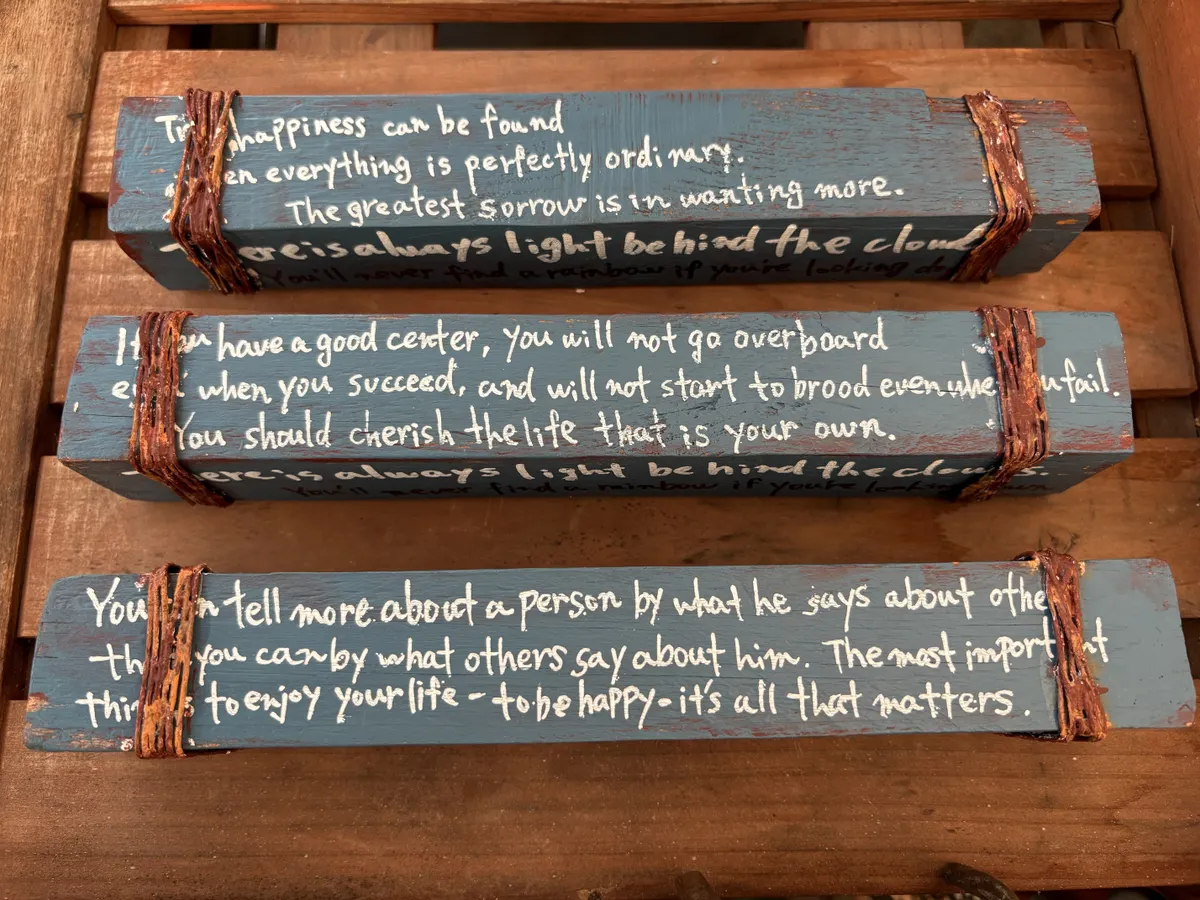 happiness can be found
everything is perfectly ordinary.
The greatest sorrow is in wanting more.
is always light behind the cloud
You'll never find a rainbow if you're looking
have a good center, you will not go overboard
when you succeed, and will not start to brood even fail.
You should cherish the life that is your own.
is always light behind the clouds.
You'll never find a rainbow if you're looking
You tell more about a person by what he says about
you can by what others say about him. The most important
to enjoy your life - to be happy - it's all that matters.